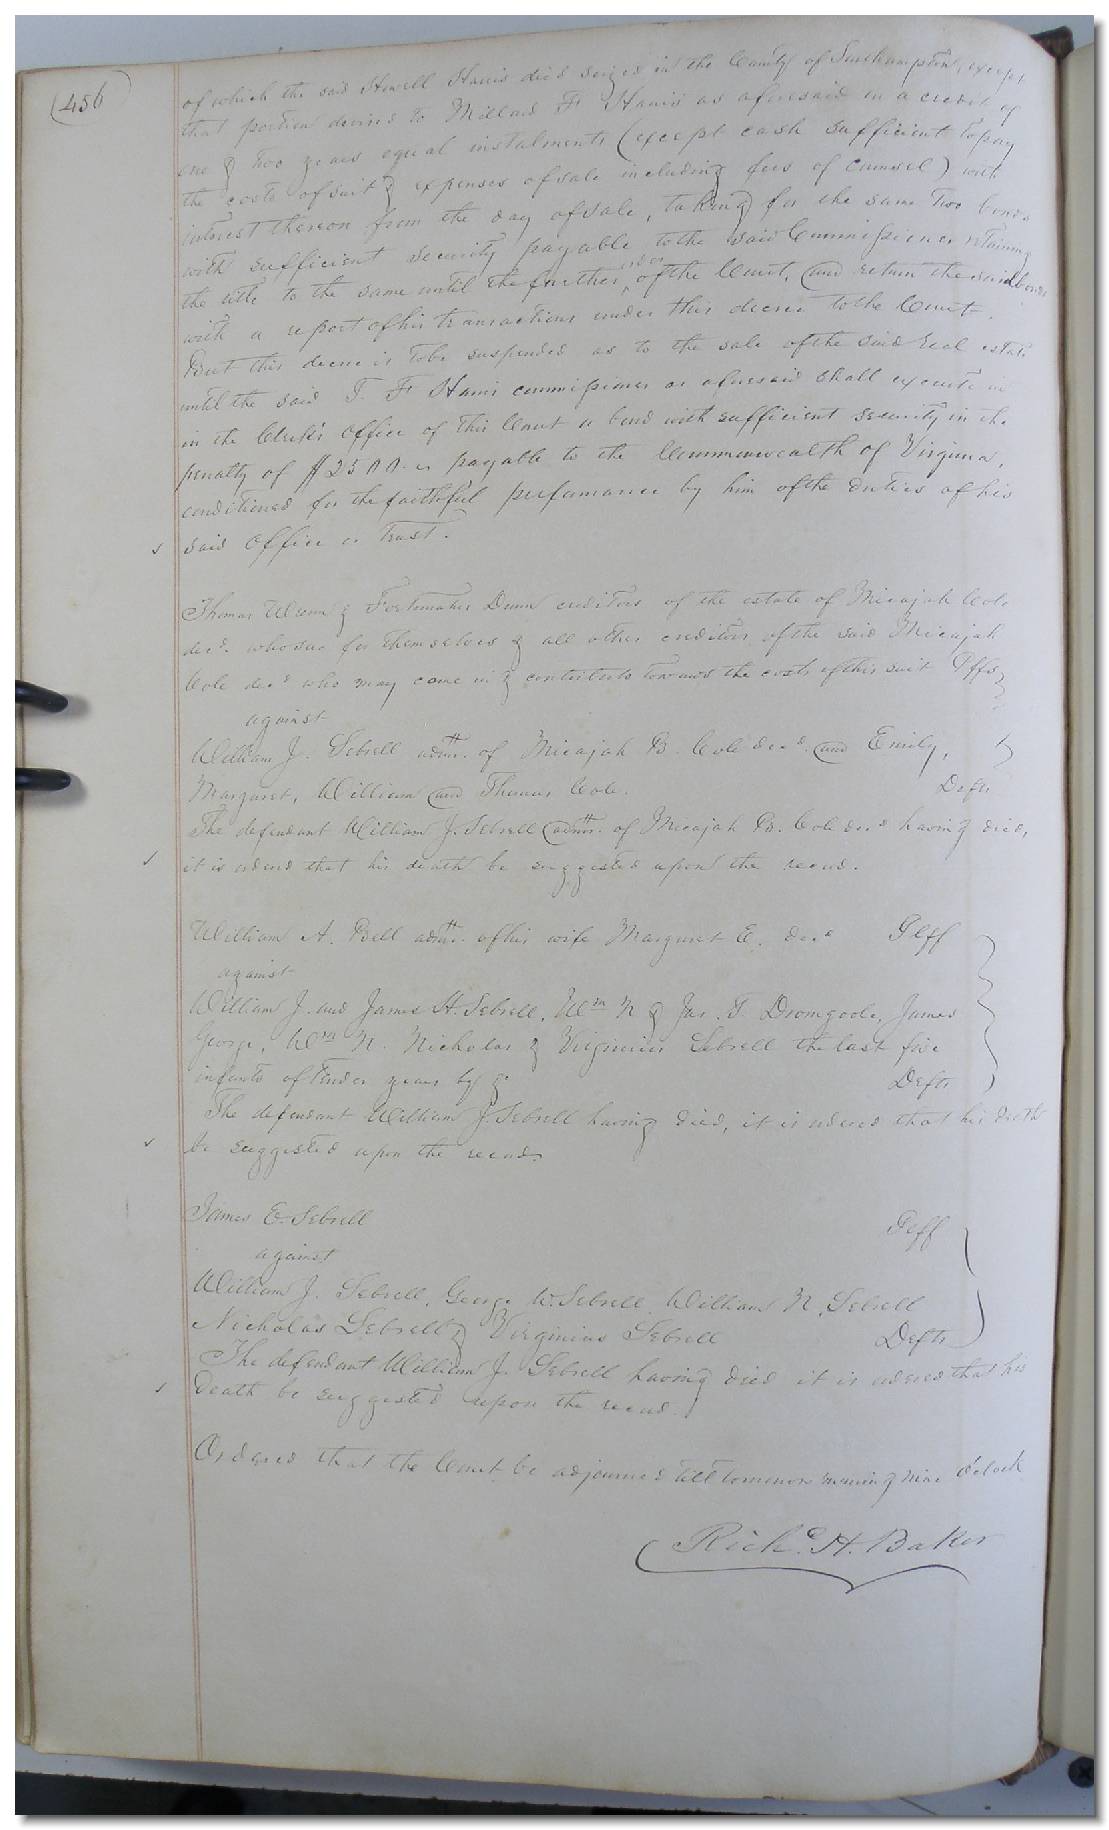 456
of which the said Howell Harris died seized in the County of Southampton, except
that portion devised to Millard F. Harris as aforesaid on a credit of
one & two years equal instalments (except cash sufficient to pay
the costs of suit & expenses of sale including fees of counsel) with
interest thereon from the day of sale, taking for the same two bonds
with sufficient security payable to the said Commissioner retaining
the title to the same until the further order of the Court, and return the said bonds
with a report of his transactions under this decree to the Court.
But this decree is to be suspended as to the sale of the said real estate
until the said T. F. Harris commissioner as aforesaid shall execute
in the Clerk's Office of this Court a bond with sufficient security in the
penalty of $2500 payable to the Commonwealth of Virginia,
conditioned for the faithful performance by him of the duties of his
said office or trust.
Thomas Wrenn & Dunn creditors of the estate of Micajah Cole
decd. who sue for themselves & all other creditors of the said Micajah
Cole decd who may come in & contribute towards the costs of this suit Plffs
against
William J. Sebrell admr. of Micajah B. Cole decd. and Emily,
Margaret, William and Thomas Cole. Defts
The defendant William J. Sebrell admr. of Micajah B. Cole decd having died,
it is ordered that his death be suggested upon the record.
William A. Bell admr. of his wife Margaret E. decd Plff
against
William J. and James H. Sebrell, Wm N & Jas. T. Dromgoole, James
George, Wm N. Nicholas & Virginius Sebrell the last five
infants of tender years by &c Defts
The defendant William J. Sebrell having died, it is ordered that his death
be suggested upon the record.
James E. Sebrell Plff
against
William J. Sebrell, George W. Sebrell, William N. Sebrell
Nicholas Sebrell & Virginius Sebrell Defts
The defendant William J. Sebrell having died it is ordered that his
death be suggested upon the record.
Ordered that the Court be adjourned till tomorrow morning nine o'clock
Richd. H. Baker